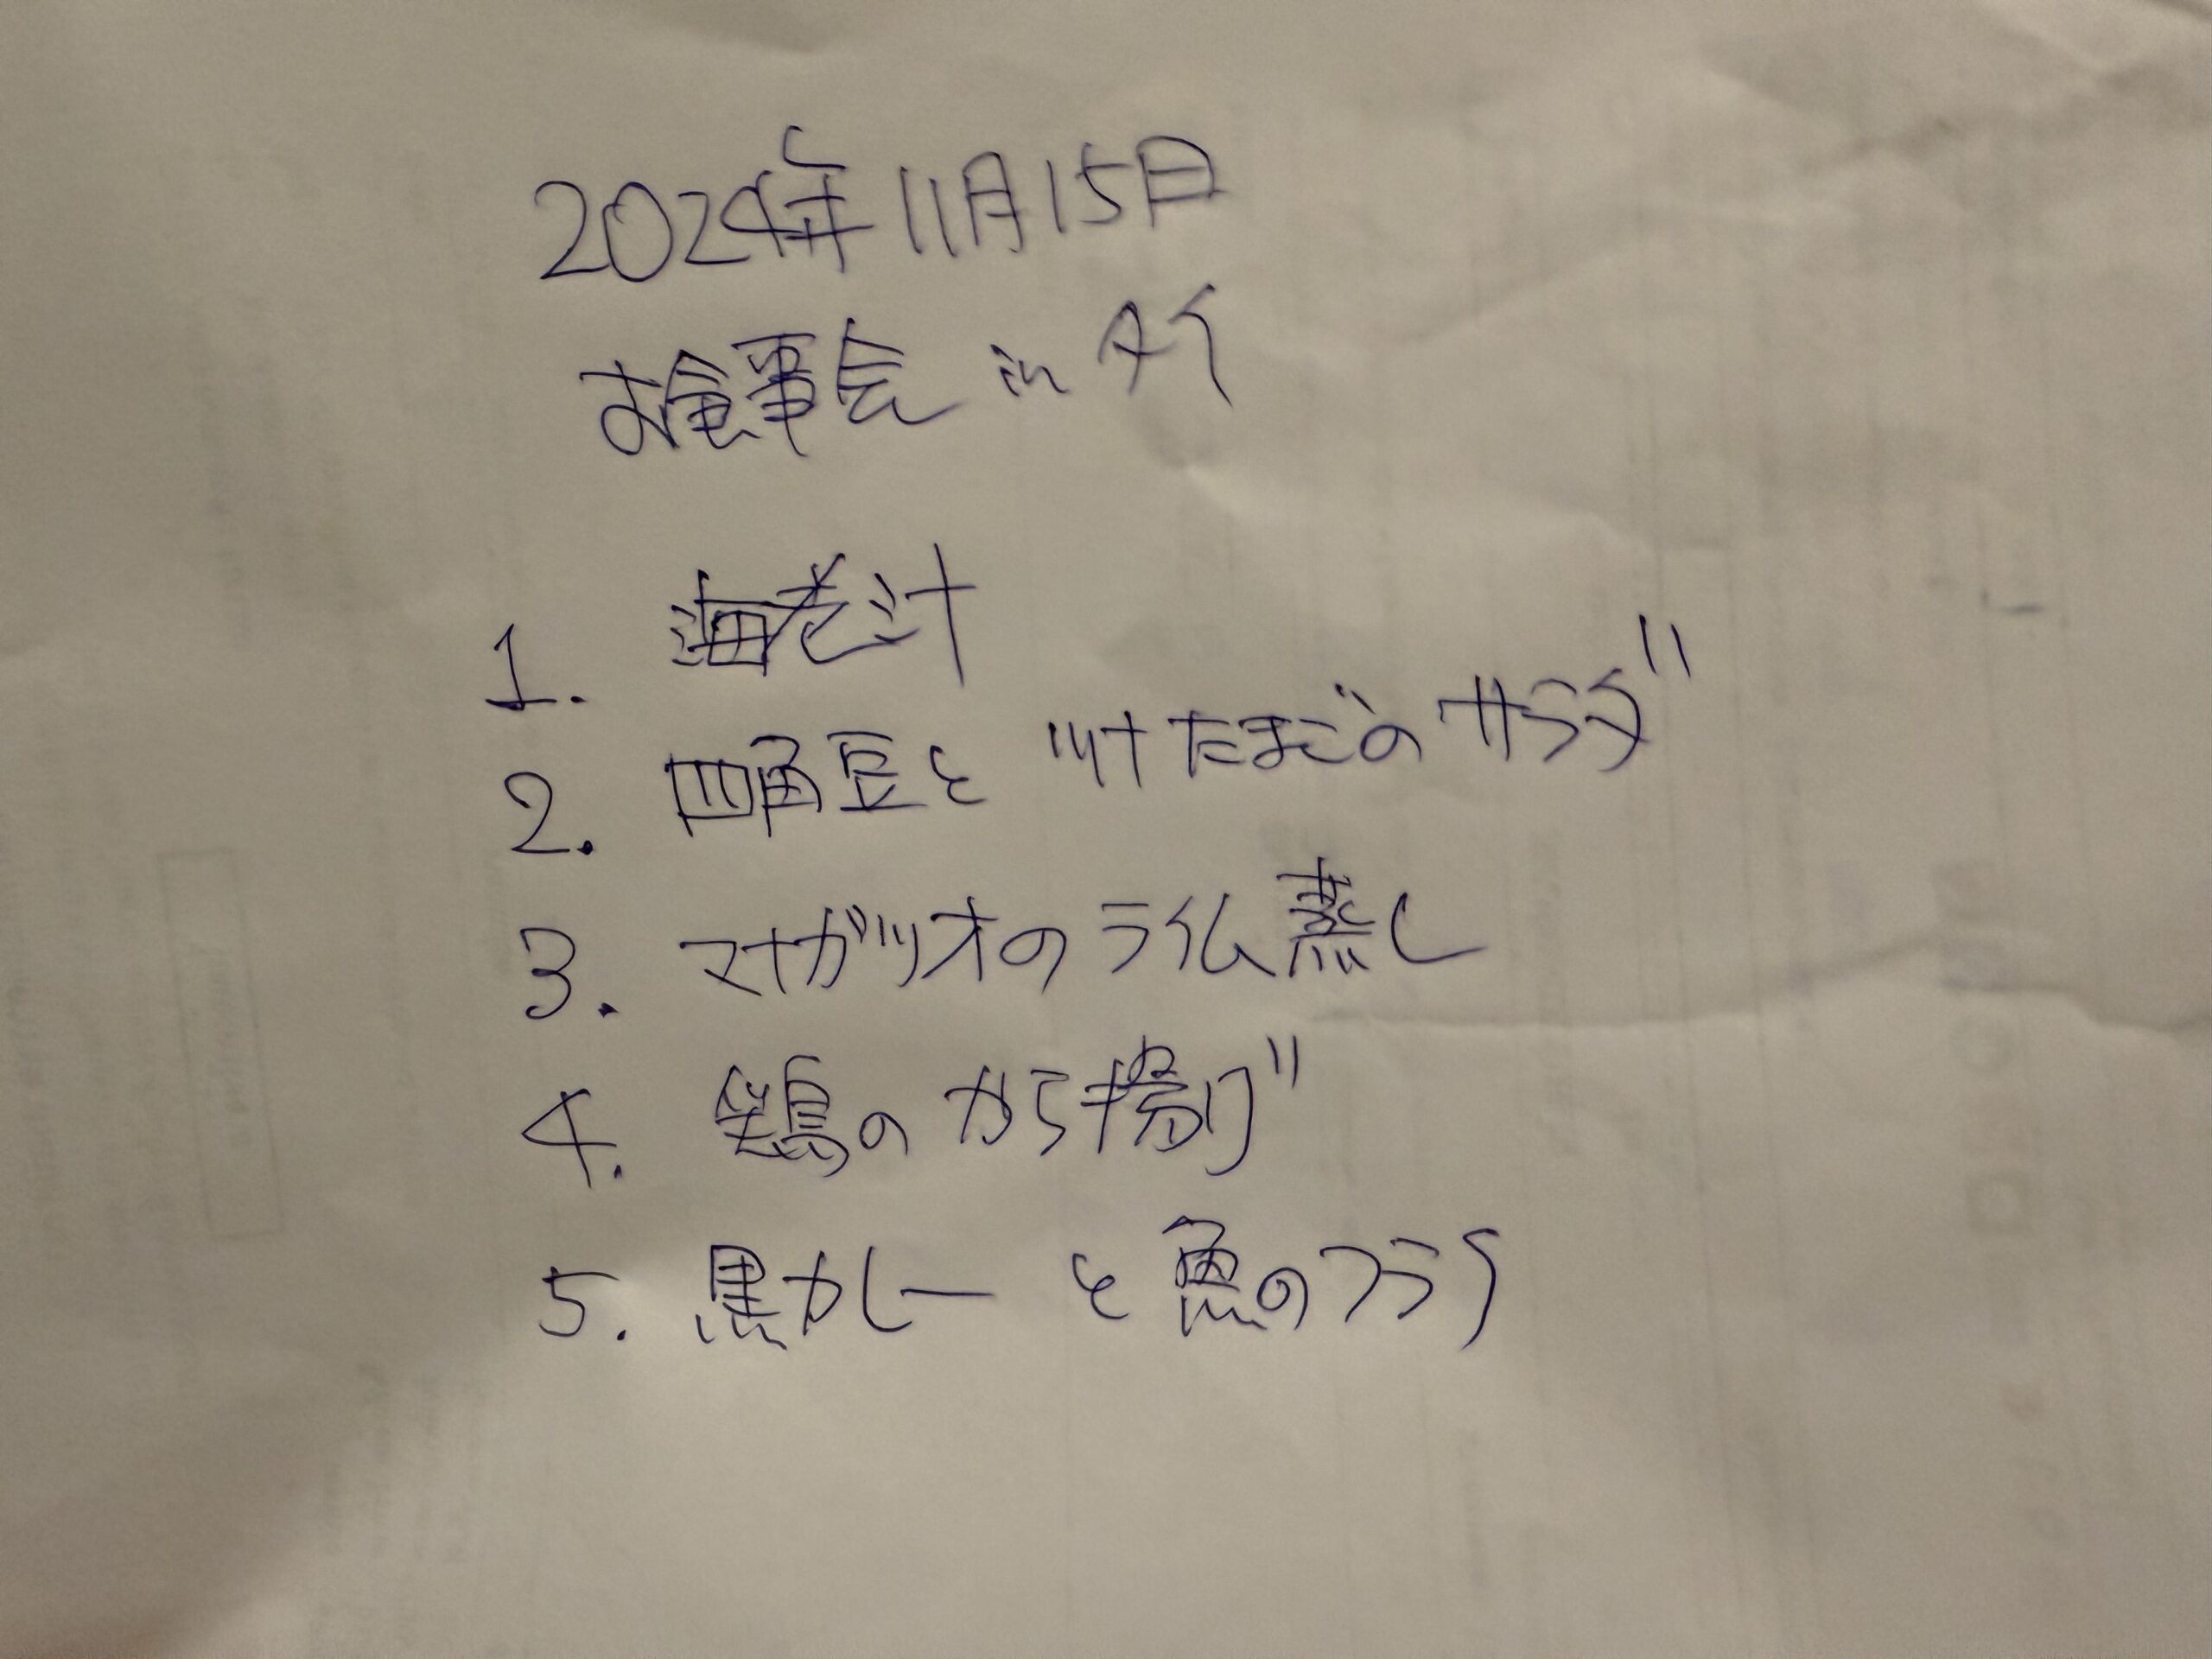 2024年11月15日
お食事会 in タイ
1. 海老汁
2. 四角豆と ツナたまごの サラダ
3. マナガツオの ライム蒸し
4. 鶏の から揚げ
5. 黒カレー と 魚のフライ